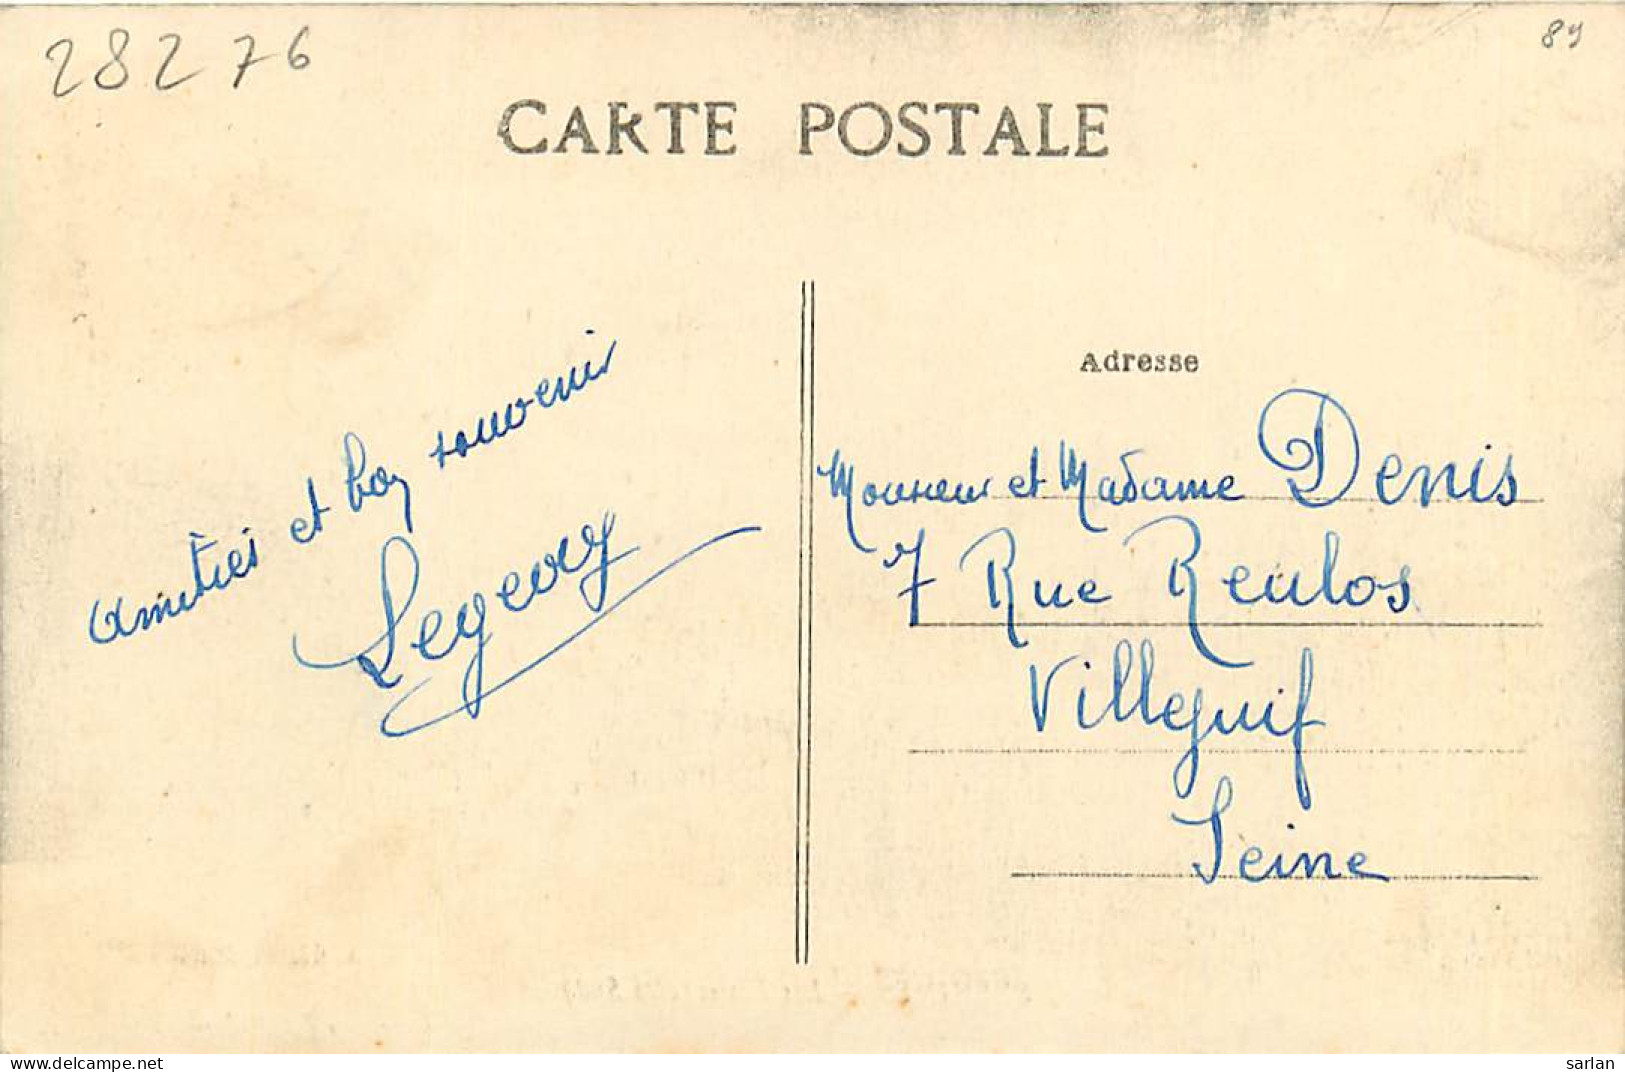 28276
89
CARTE POSTALE
amitiés et bon souvenir
Adresse
Monsieur et Madame Denis
7 Rue Reulos
Villejuif
Seine
www.delcampe.net
sarlan